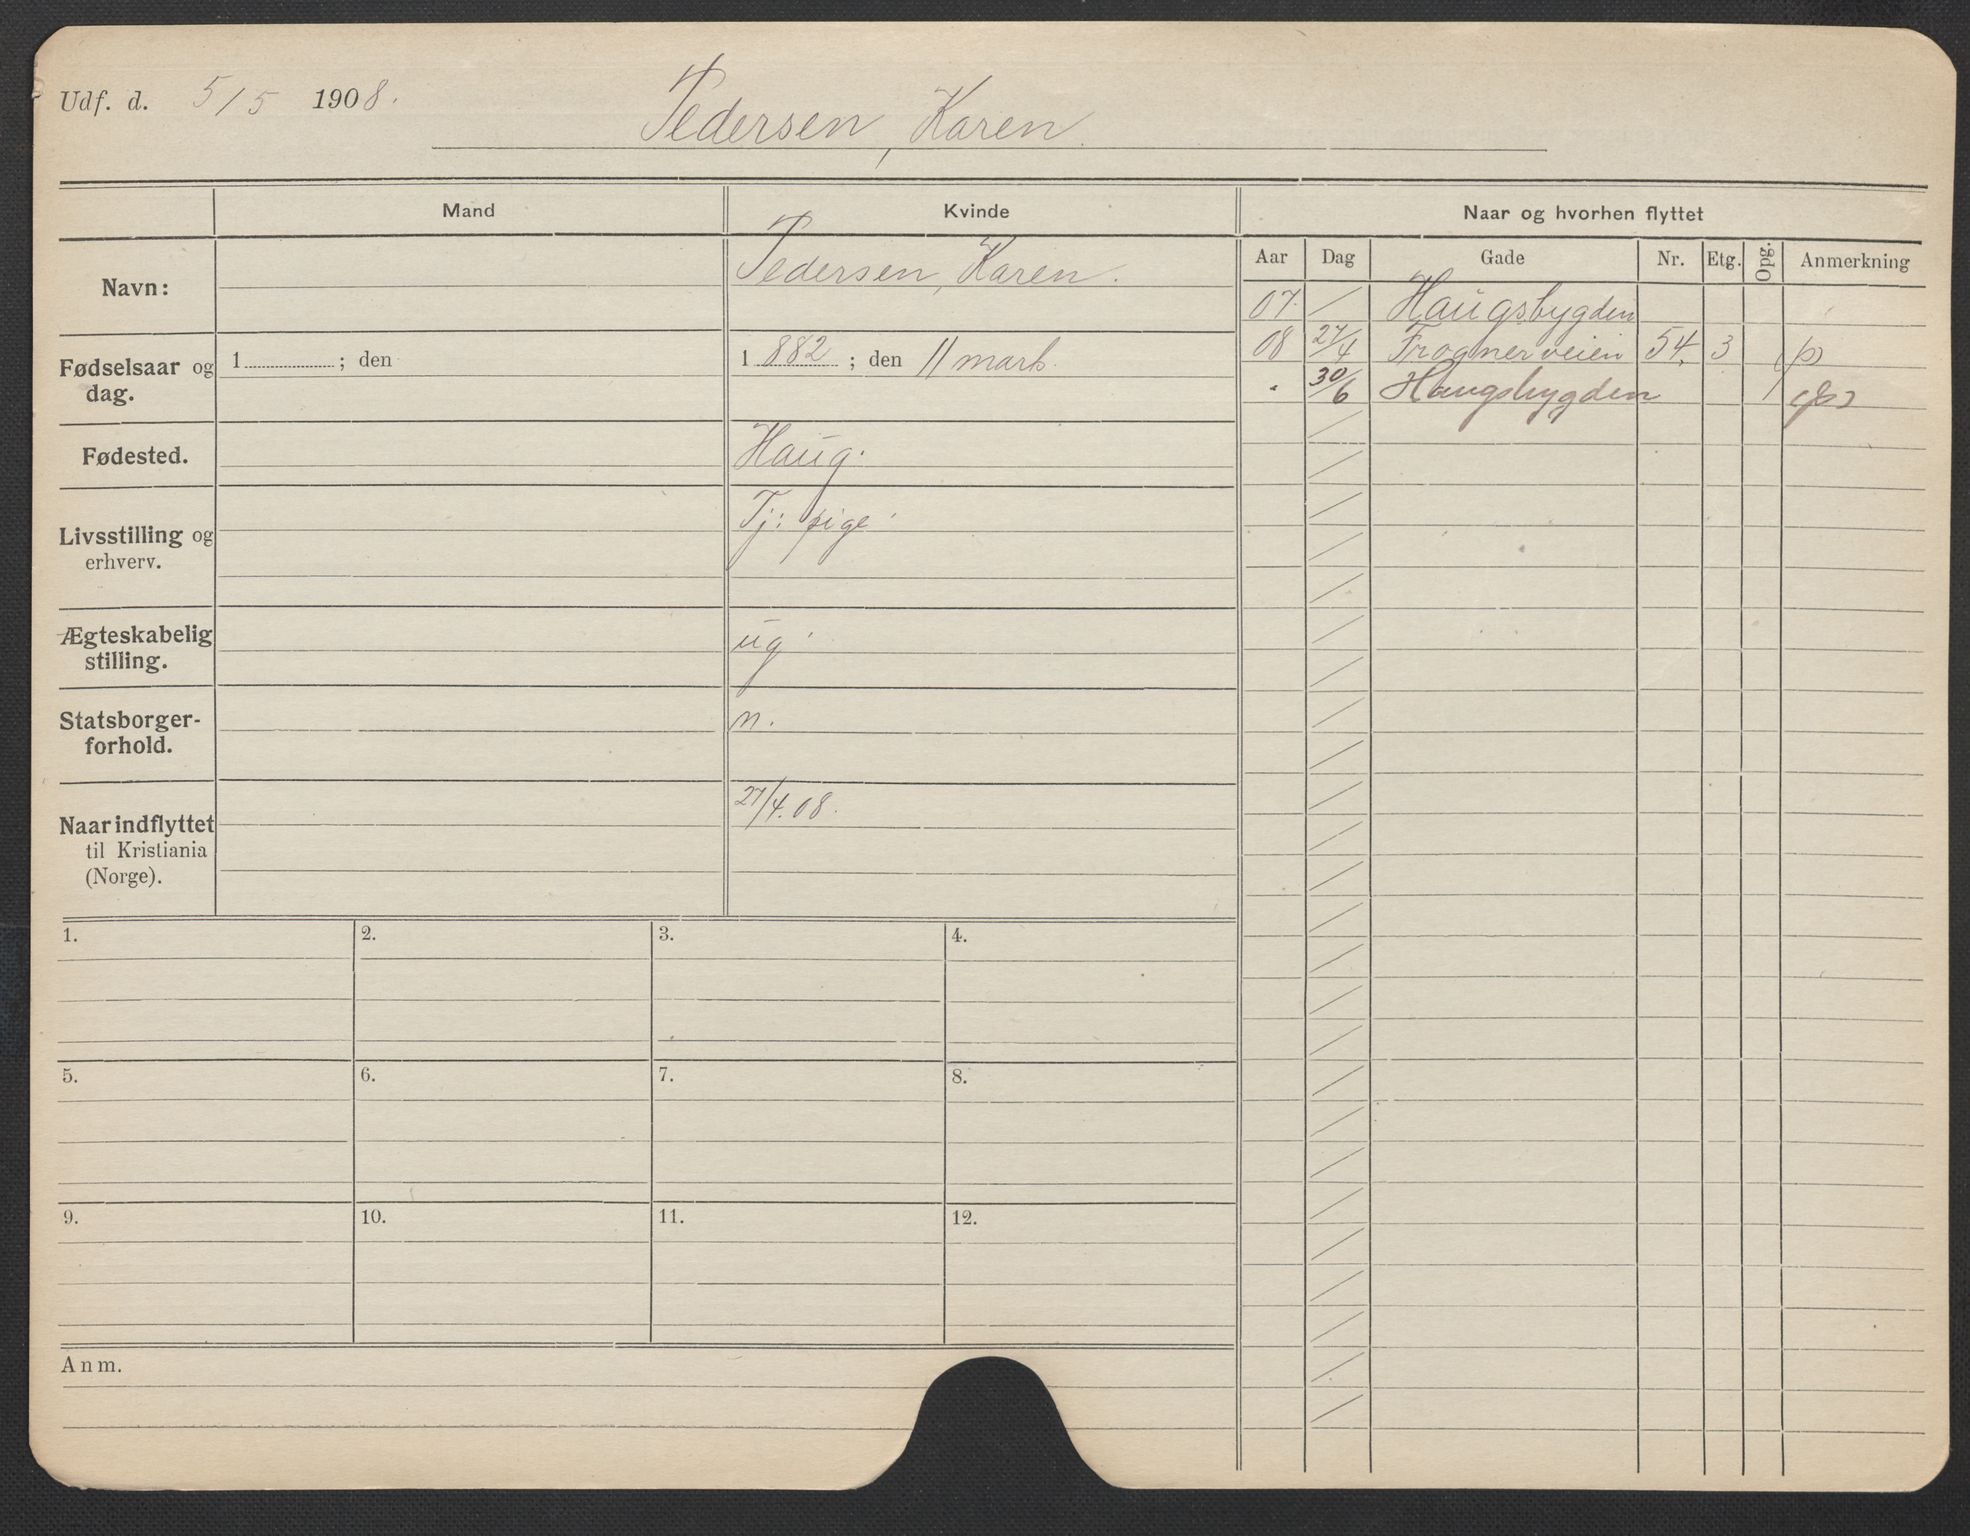 Udf. d. 5/5 1908.
Pedersen, Karen.
Mand Kvinde Naar og hvorhen flyttet
Aar Dag Gade Nr. Etg. Opg. Anmerkning
Navn: Pedersen, Karen.
07. Haugsbygden
08 27/4 Frognerveien 54. 3 (p)
" 30/6 Haugsbygden (p)
Fødselsaar og 1 ; den 1882 ; den 11 marts.
dag.
Fødested. Haug.
Livsstilling og Tj: pige
erhverv.
Ægteskabelig ug
stilling.
Statsborger- n.
forhold.
Naar indflyttet 27/4.08.
til Kristiania
(Norge).
1. 2. 3. 4.
5. 6. 7. 8.
9. 10. 11. 12.
Anm.